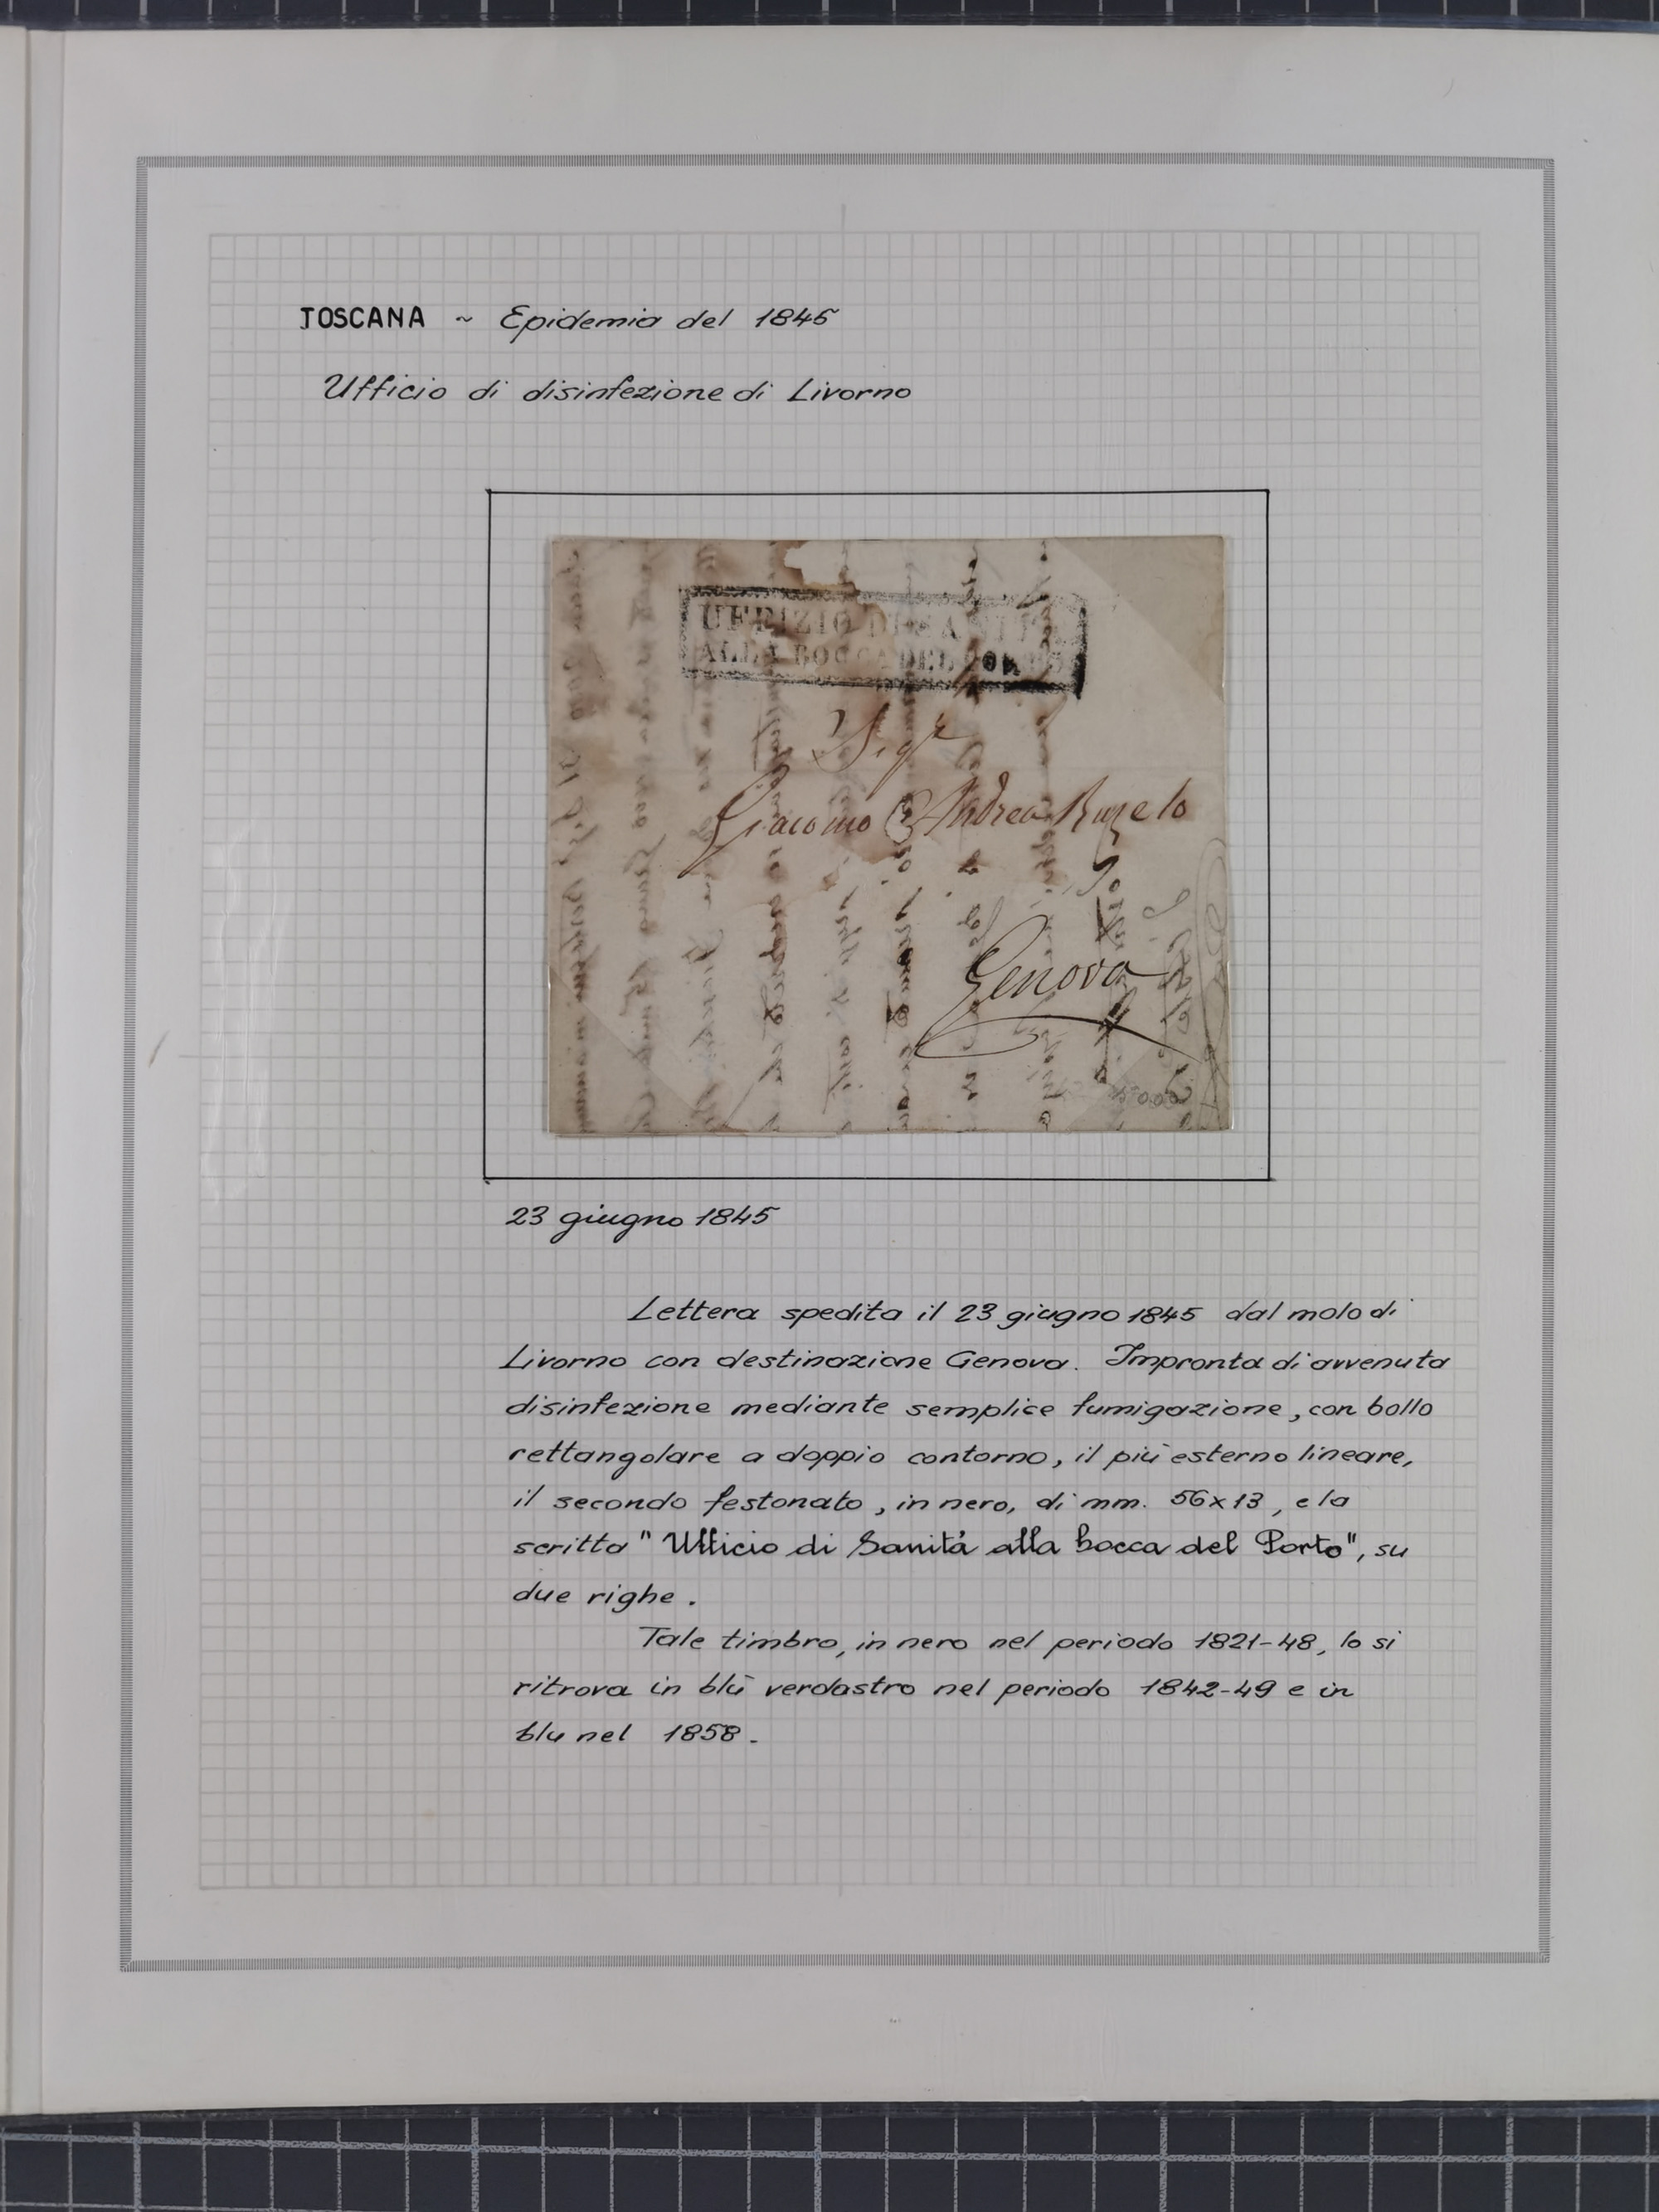 TOSCANA ~ Epidemia del 1845
Ufficio di disinfezione di Livorno
UFFIZIO DI SANITÀ
ALLA BOCCA DEL PORTO
Sigr
Giacomo & Andrea
Genova
23 giugno 1845
Lettera spedita il 23 giugno 1845 dal molo di
Livorno con destinazione Genova. Impronta di avvenuta
disinfezione mediante semplice fumigazione, con bollo
rettangolare a doppio contorno, il più esterno lineare,
il secondo festonato, in nero, di mm. 56x13, e la
scritta "Ufficio di Sanità alla bocca del Porto", su
due righe.
Tale timbro, in nero nel periodo 1821-48, lo si
ritrova in blù verdastro nel periodo 1842-49 e in
blu nel 1858.